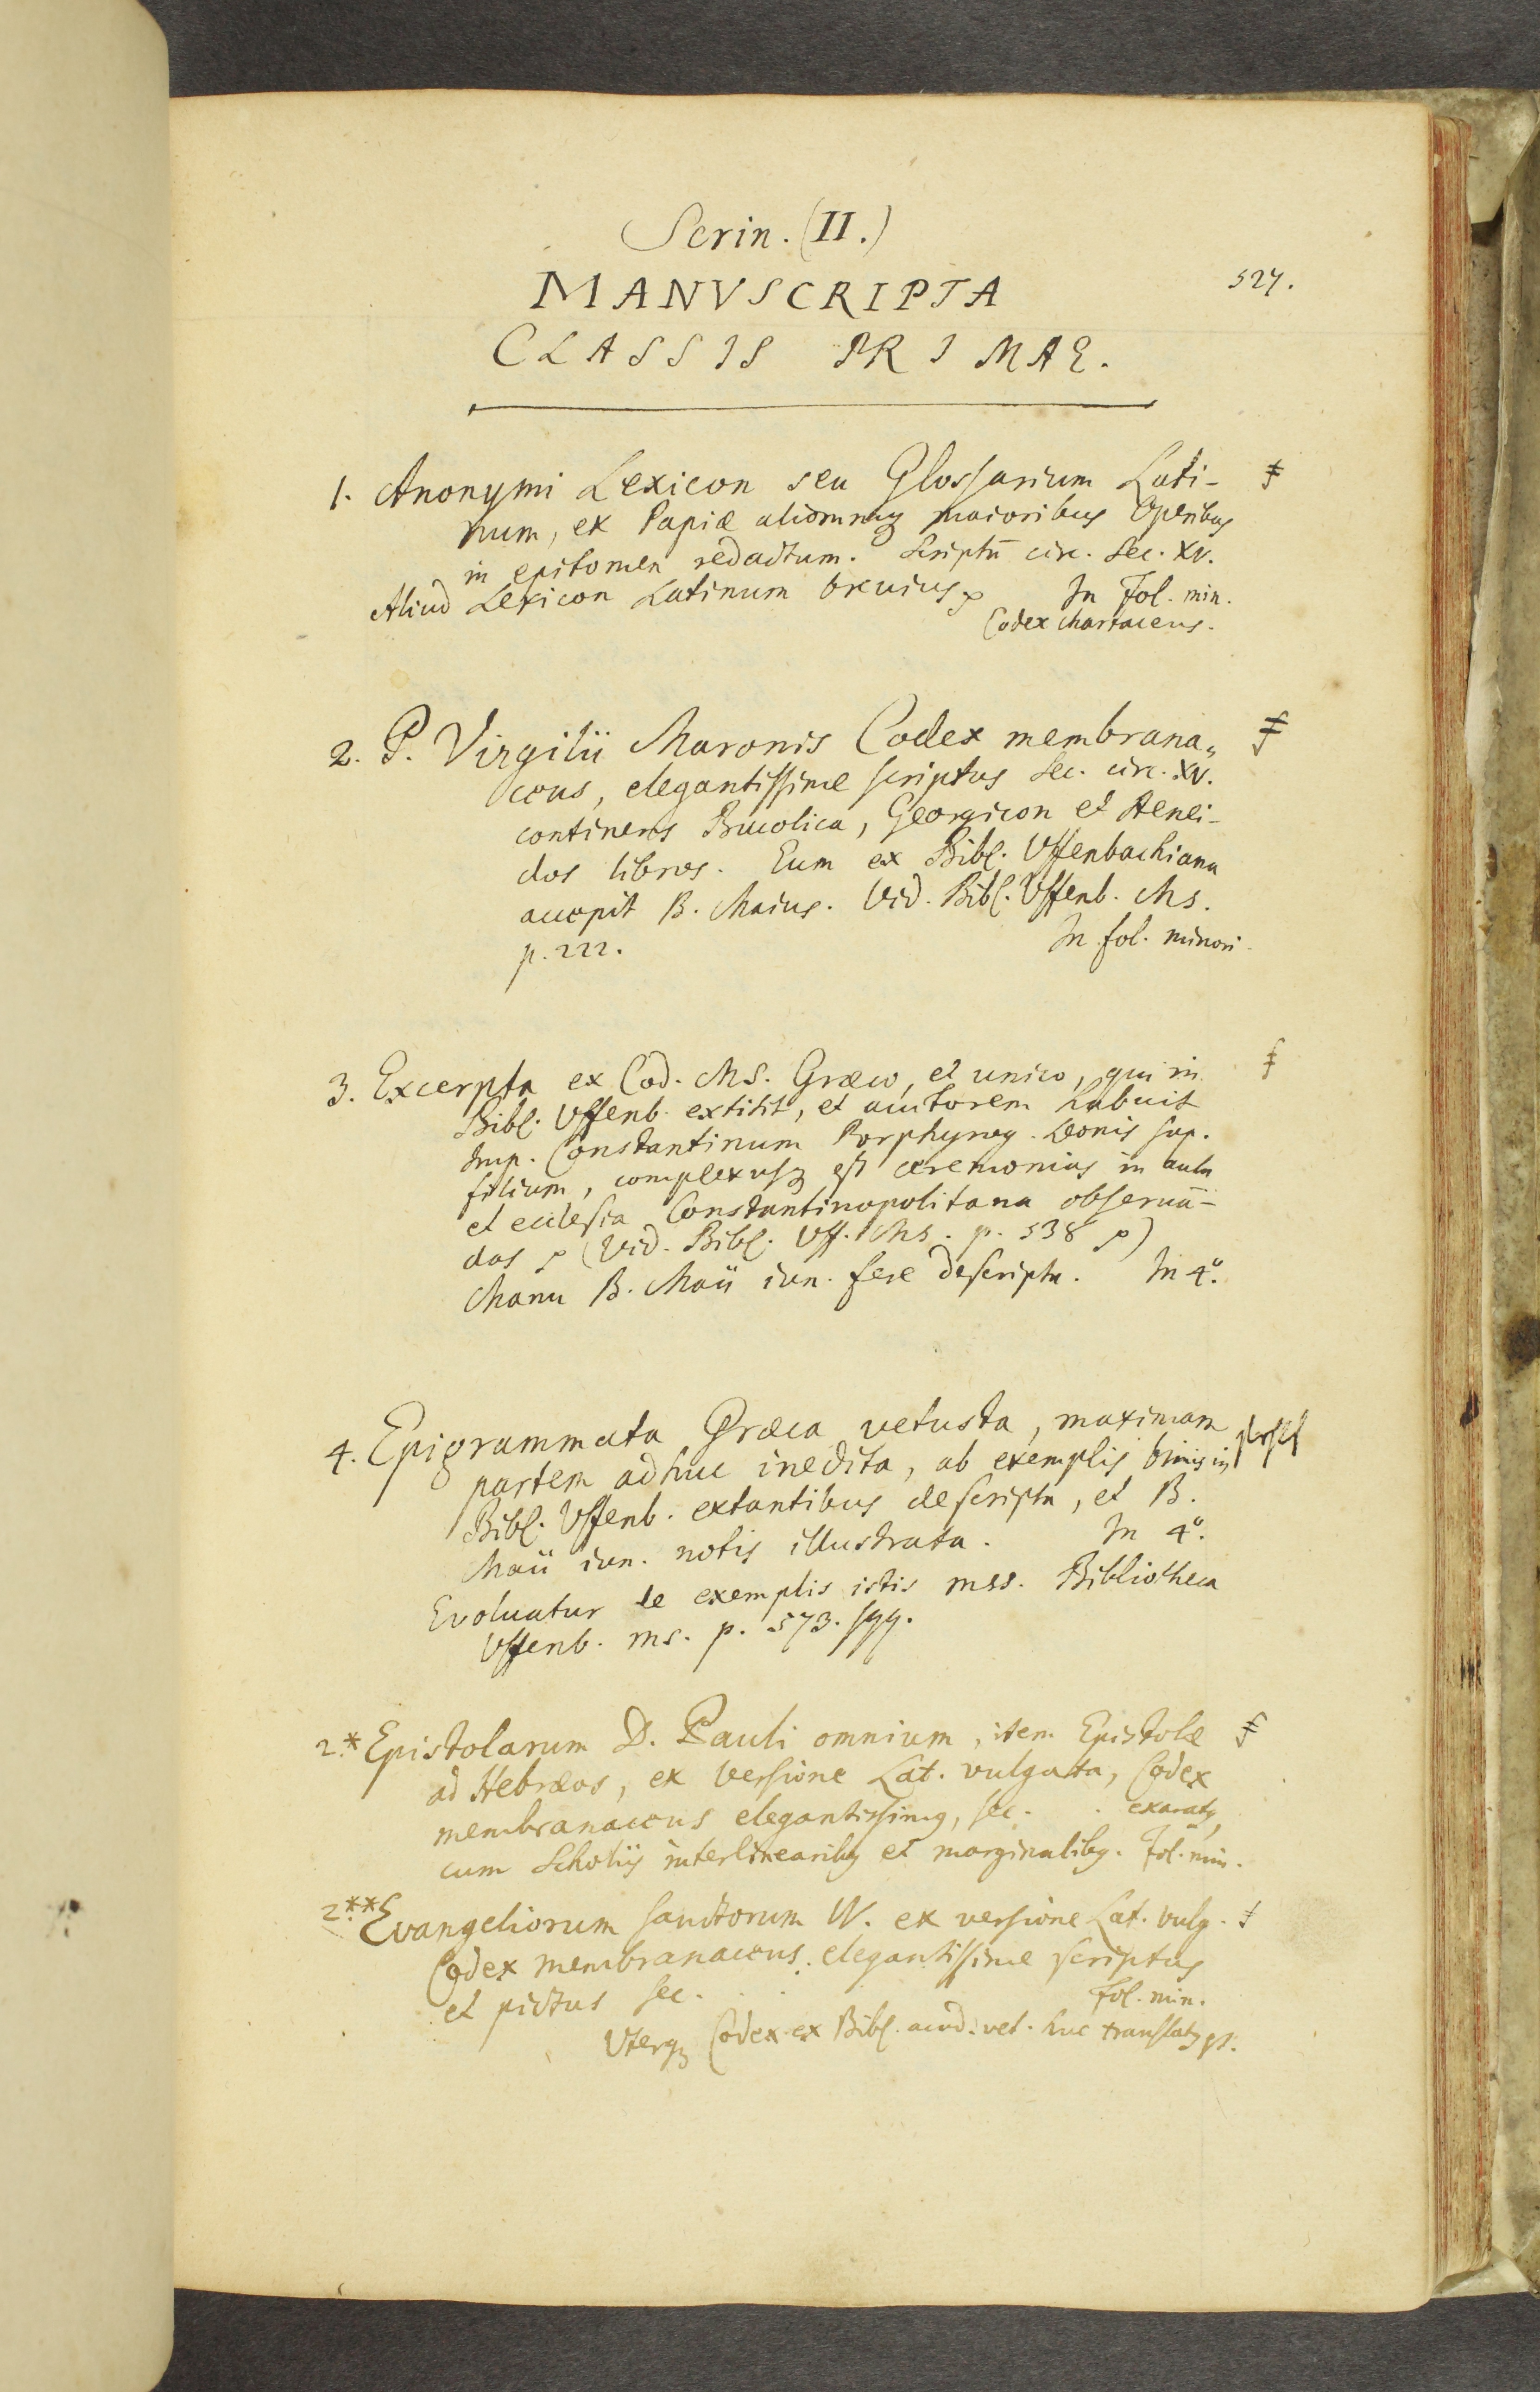 Scrin. (II.)
MANVSCRIPTA
527.
CLASSIS PRIMAE.
1. Anonymi Lexicon seu Glossarium Lati-
num, ex Papiæ aliorumq maioribus Operibus
in epitomen redactum. Scriptū circ. Sec. XV.
Aliud Lexicon Latinum brevius. In Fol. min.
Codex chartaceus.
2. P. Virgilii Maronis Codex membrana„
ceus, elegantissime scriptus Sec. circ. XV.
continens Bucolica, Georgicon et Aenei-
dos libros. Eum ex Bibl. Uffenbachiana
accepit B. Maius. Vid. Bibl. Uffenb. Ms.
p. 222. In fol. minori.
3. Excerpta ex Cod. MS. Græco, et unico, qui in
Bibl. Uffenb. extitit, et auctorem habuit
Imp. Constantinum Porphyrog. Leonis sap.
filium, complexusq est ceremonias in aula
et ecclesia Constantinopolitana obseruā-
das (Vid. Bibl. Uff. Ms. p. 538)
Manu B. Maii iun. fere descripta. In 4º.
4. Epigrammata Græca vetusta, maximam
partem adhuc inedita, ab exemplis binis in
Bibl. Uffenb. extantibus descripta, et B.
Maii iun. notis illustrata. In 4º.
Evoluatur de exemplis istis mss. Bibliotheca
Uffenb. ms. p. 573. sqq.
2.* Epistolarum D. Pauli omnium, item Epistolæ
ad Hebræos, ex versione Lat. vulgata, Codex
membranaceus elegantissimus, sec. . exaratus,
cum Scholiis interlinearibus et marginalibus. Fol. min.
2.** Evangeliorum sanctorum IV. ex versione Lat. vulg.
Codex membranaceus elegantissime scriptus
et pictus sec. . . Fol. min.
Uterq Codex ex Bibl. acad. vet. huc translatus est.